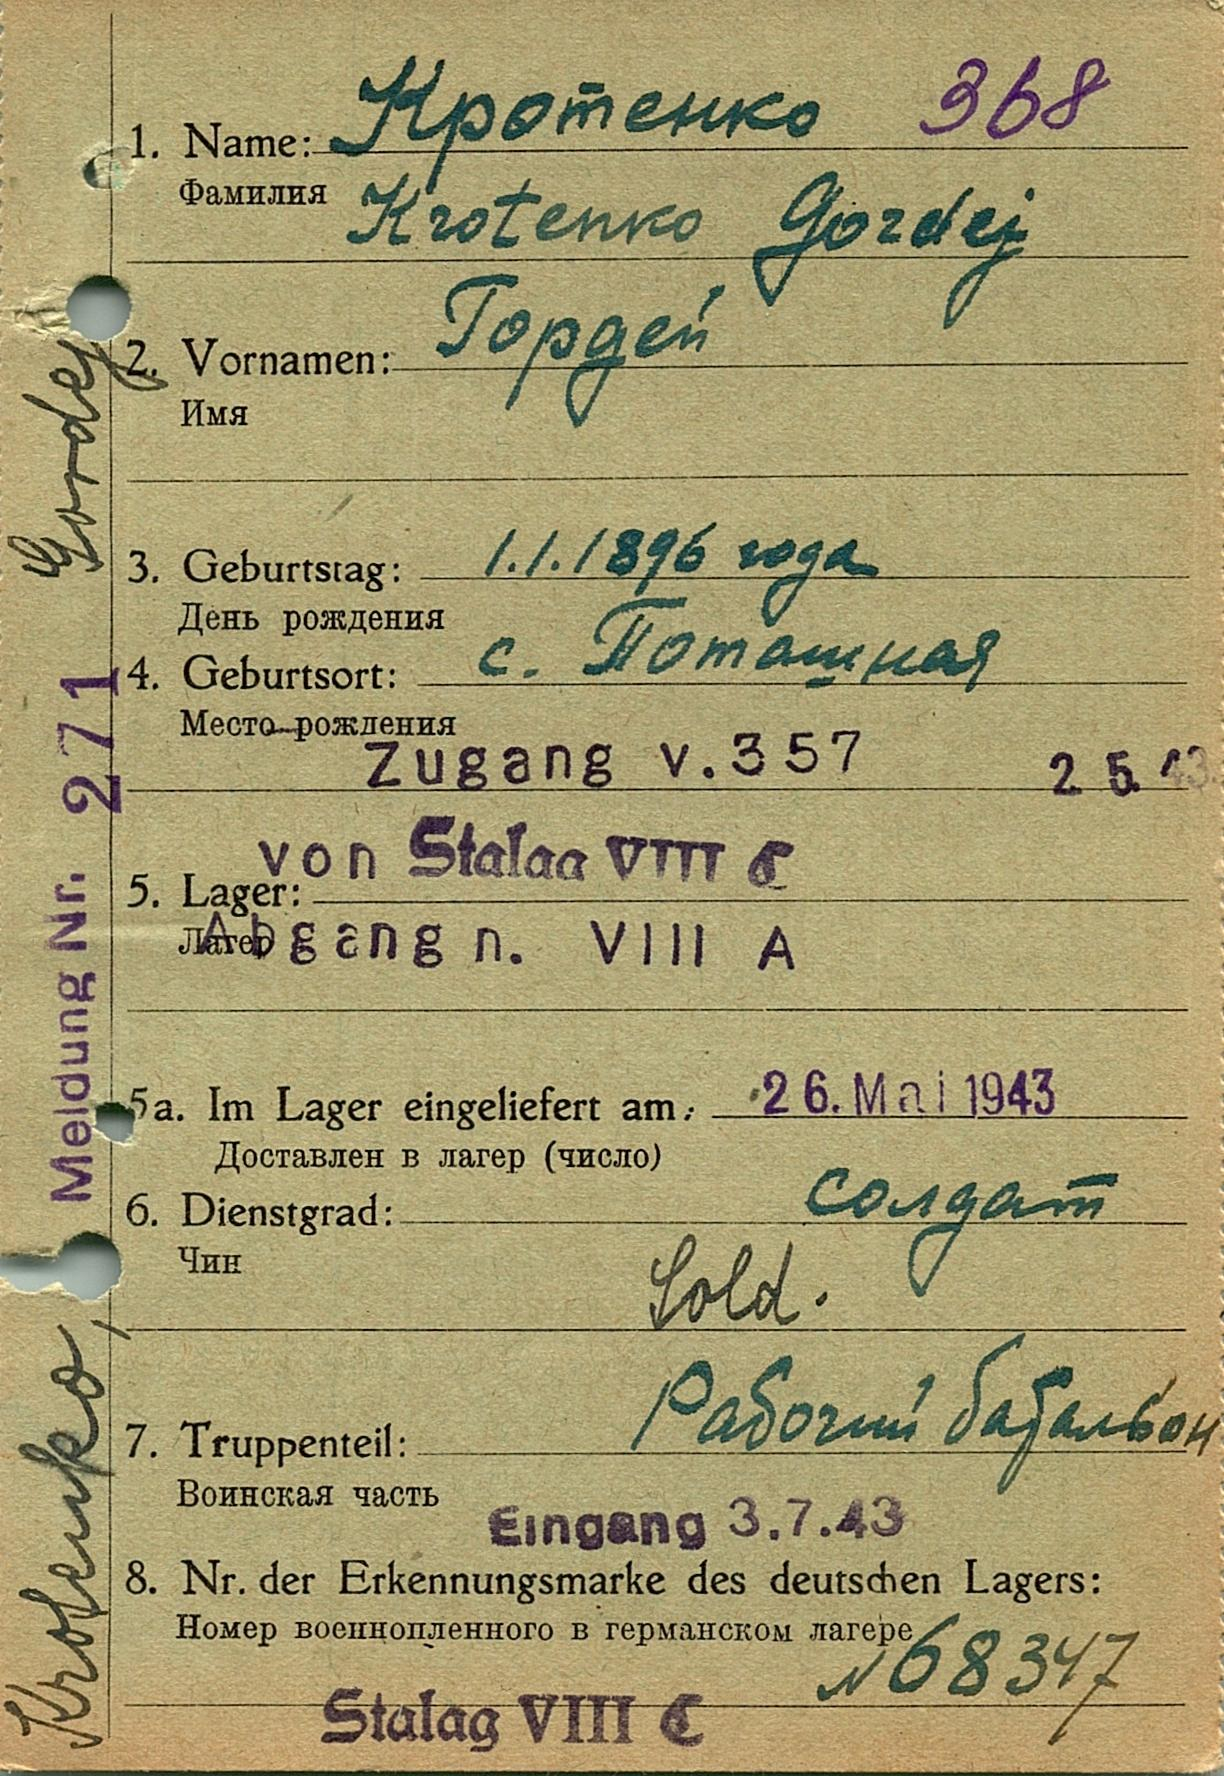 Кротенко 368
1. Name:
Фамилия
Krotenko Gordej
Гордей
2. Vornamen:
Имя
3. Geburtstag: 1.1.1896 года
День рождения
4. Geburtsort: с. Поташная
Место рождения
Zugang v. 357 2 5. 43.
von Stalag VIII C
5. Lager:
Лагер
Abgang n. VIII A
5a. Im Lager eingeliefert am: 26. Mai 1943
Доставлен в лагер (число)
6. Dienstgrad: солдат
Чин
Sold.
7. Truppenteil: Рабочий батальон
Воинская часть
Eingang 3.7.43
8. Nr. der Erkennungsmarke des deutschen Lagers:
Номер военнопленного в германском лагере
№ 68347
Stalag VIII C
Krotenko, Gordej
Meldung Nr. 271